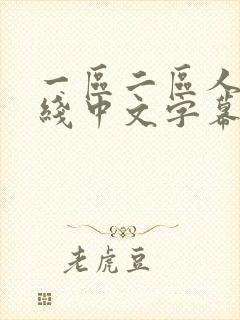 一區二區人
綫中文字幕
老虎豆